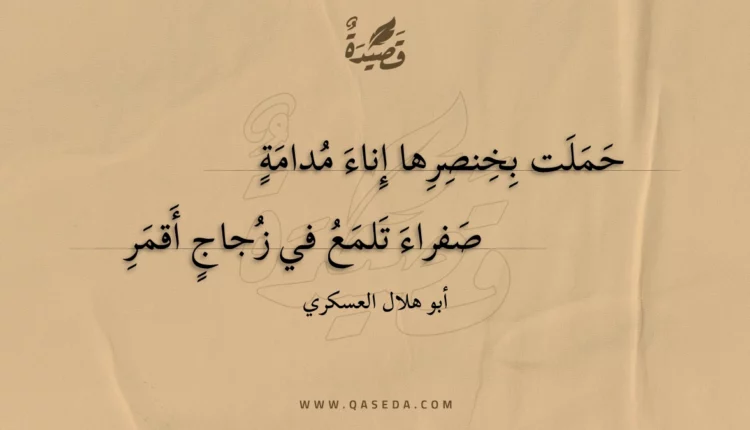 قَصِيْدَةٌ
حَمَلَت بِخِنصِرِها إِناءَ مُدامَةٍ
صَفراءَ تَلمَعُ في زُجاجٍ أَقمَرِ
أبو هلال العسكري
WWW.QASEDA.COM